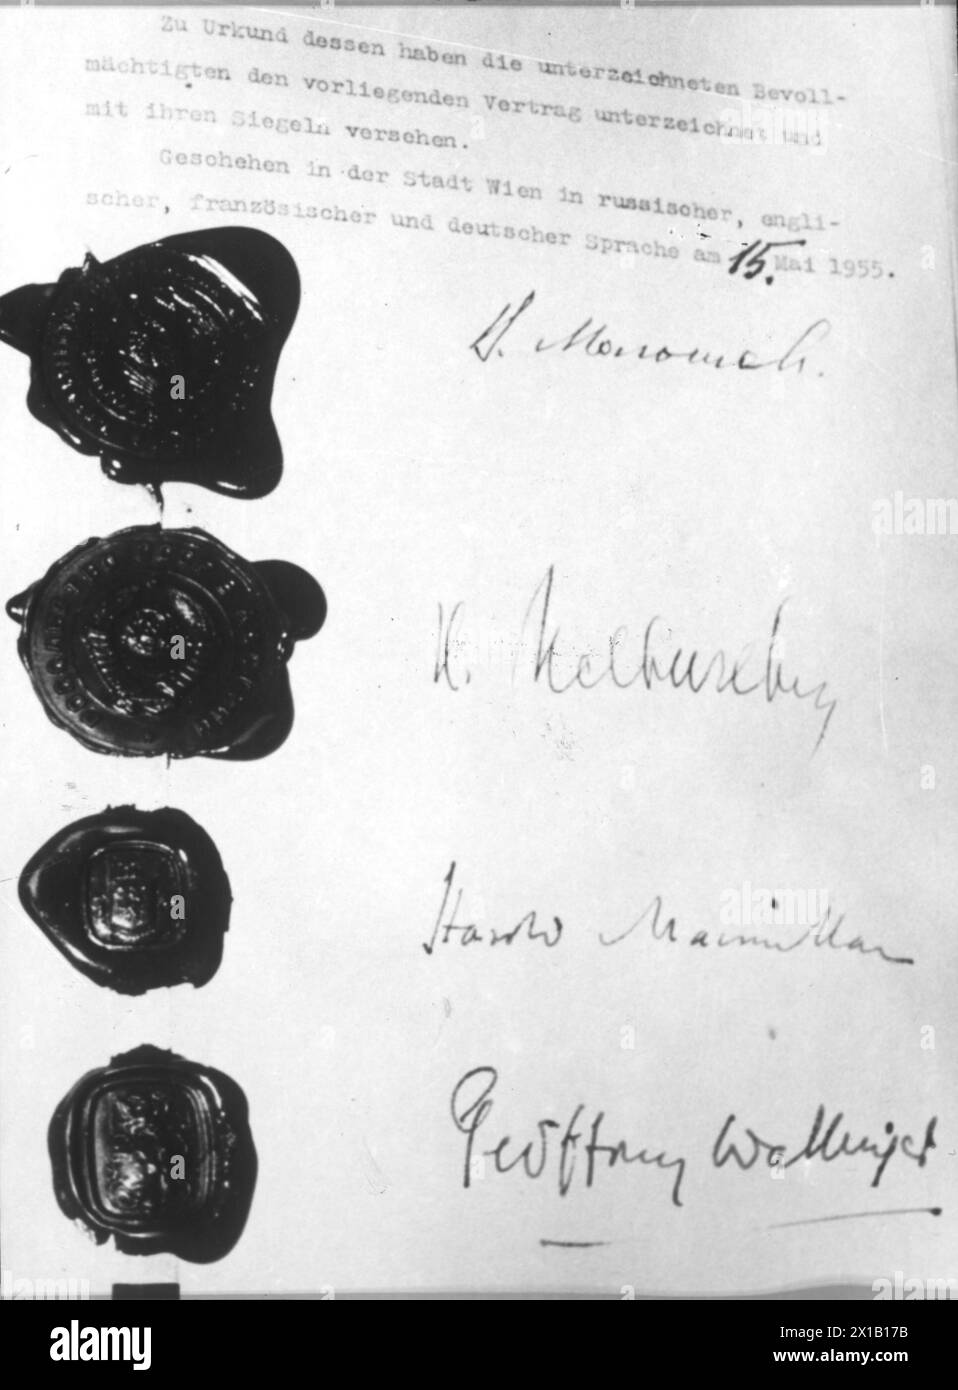 Zu Urkund dessen haben die unterzeichneten Bevoll-
mächtigten den vorliegenden Vertrag unterzeichnet und
mit ihren Siegeln versehen.
Geschehen in der Stadt Wien in russischer, engli-
scher, französischer und deutscher Sprache am 15. Mai 1955.
Harold Macmillan
Geoffrey Wallinger
alamy
Image ID: 2X1B17B
www.alamy.com